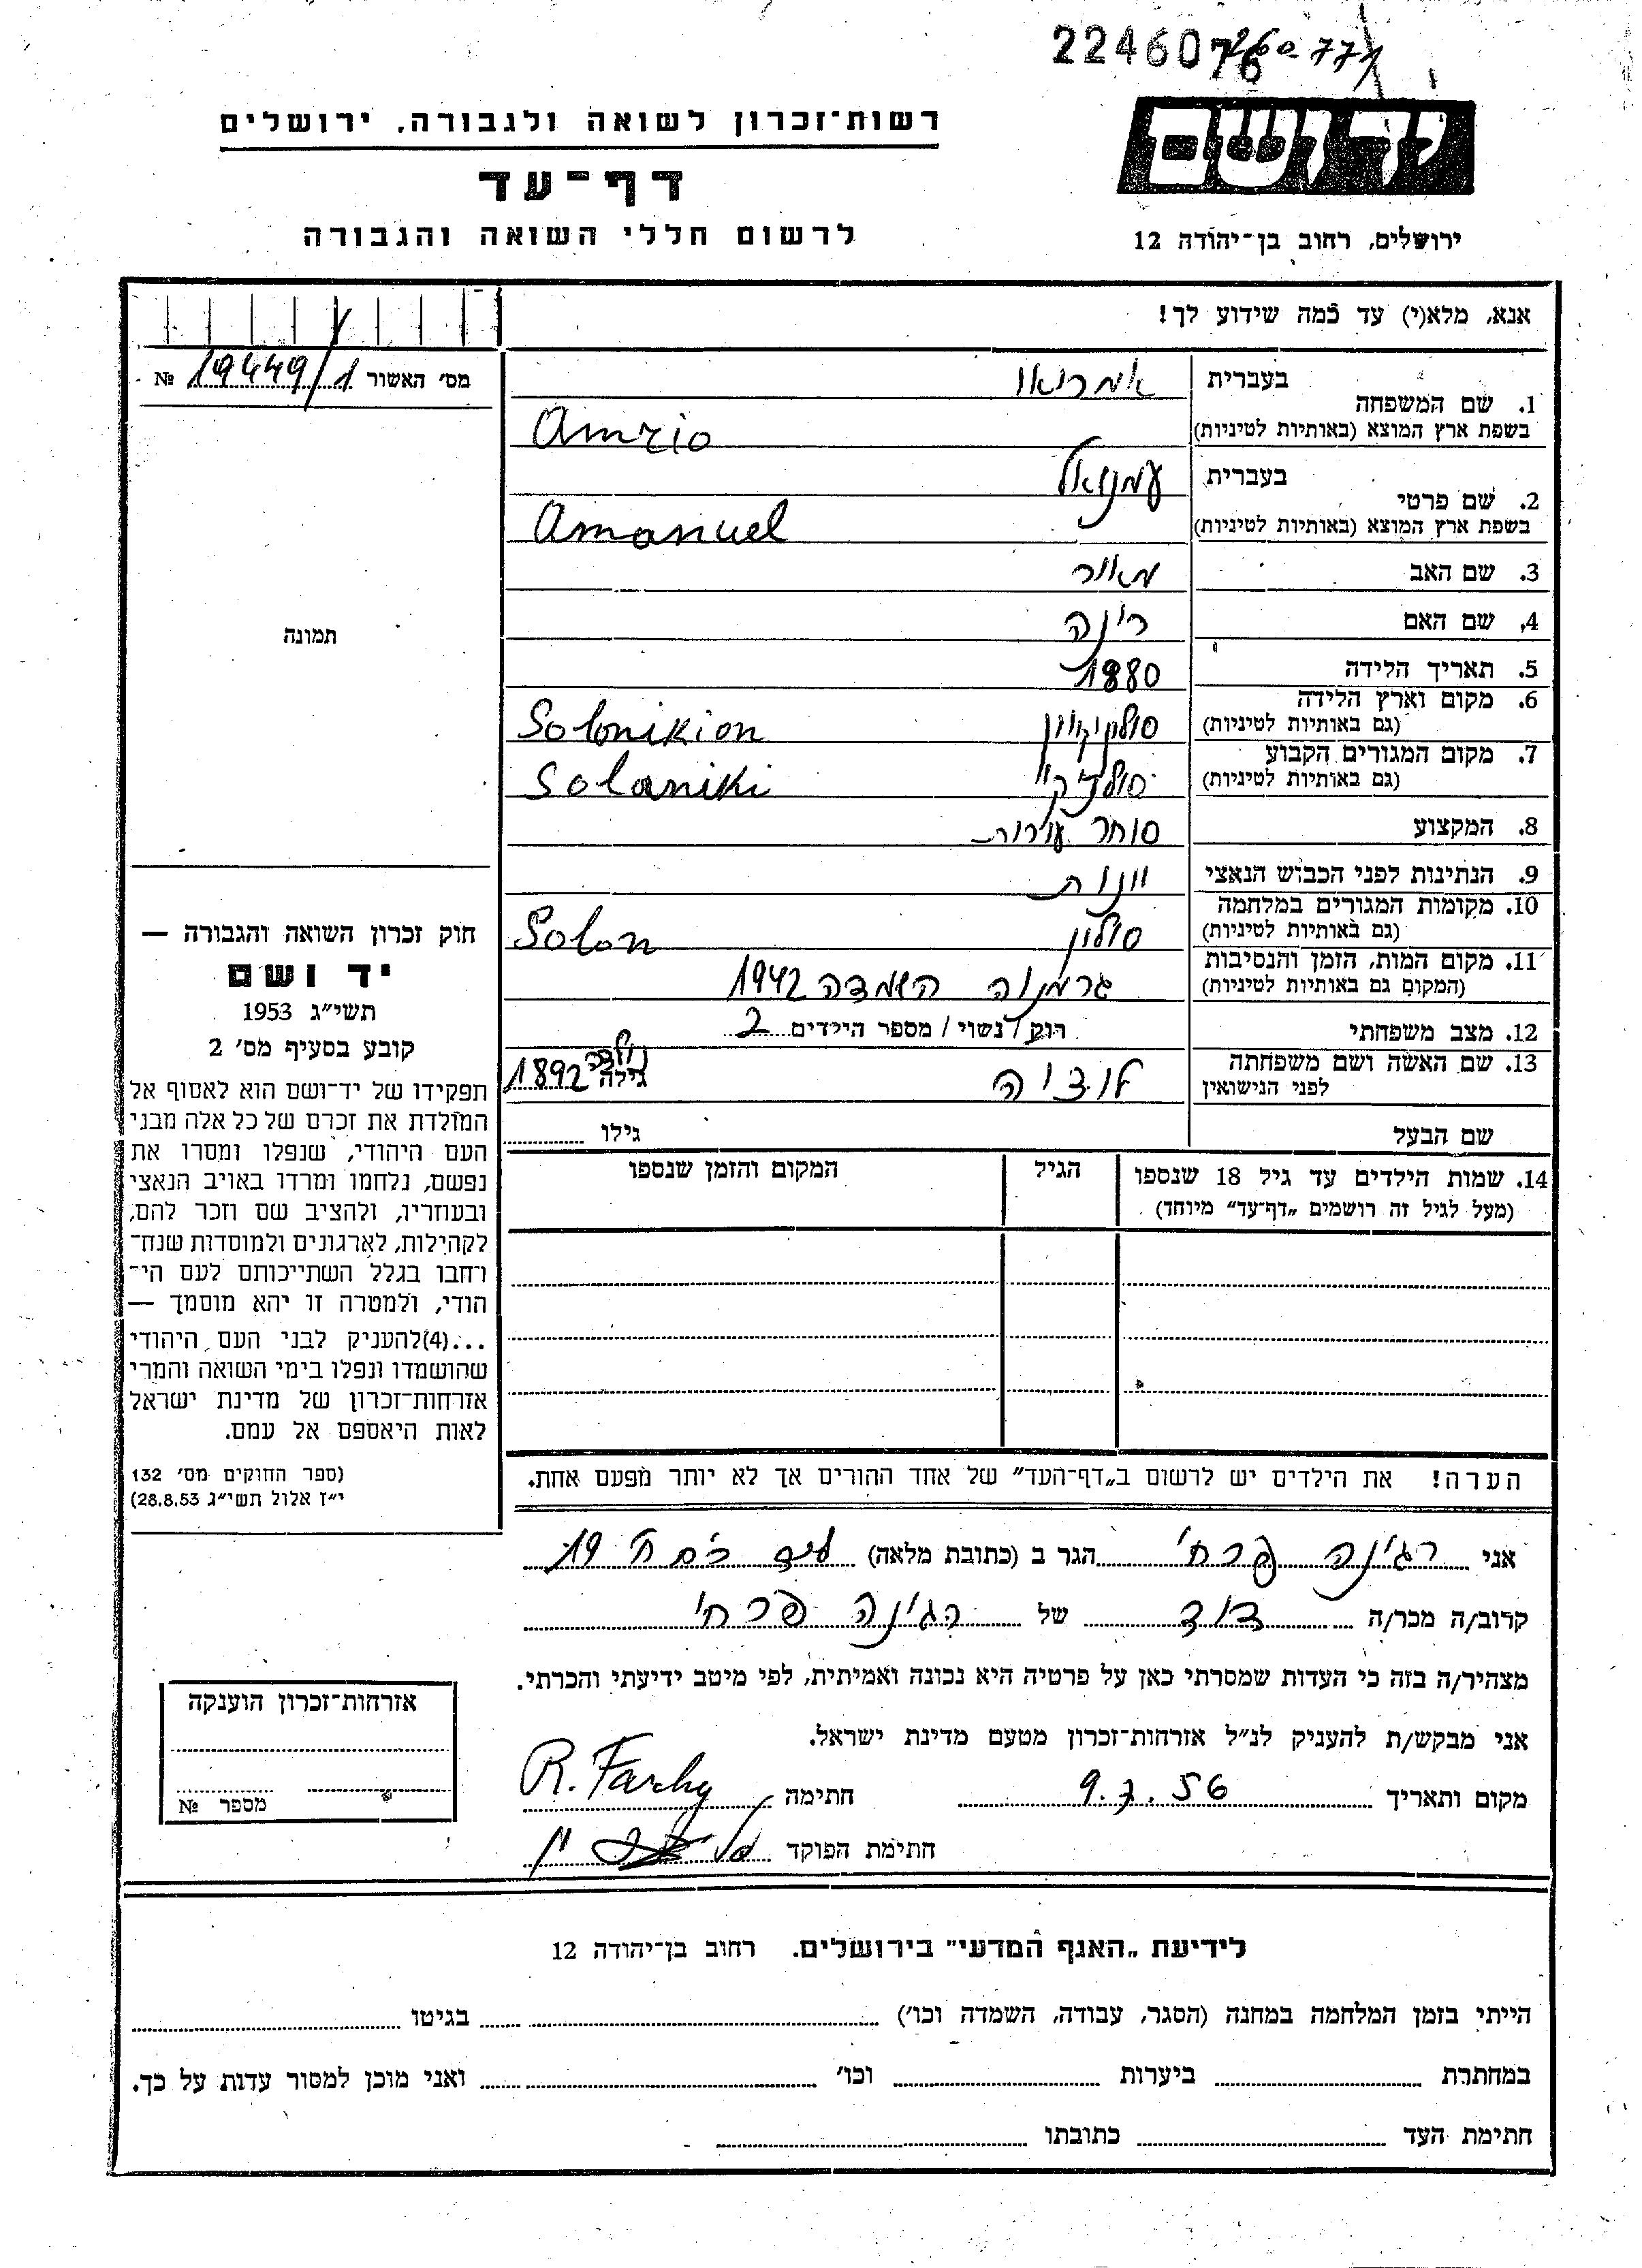 2246076
260-771
יד ושם
רשות־זכרון לשואה ולגבורה, ירושלים
דף־עד
לרשום חללי השואה והגבורה
ירושלים, רחוב בן־יהודה 12
אנא, מלא(י) עד כמה שידוע לך!
מס׳ האשור 19449/1 №
1. שם המשפחה
בעברית אמריאו
בשפת ארץ המוצא (באותיות לטיניות) Amrio
2. שם פרטי
בעברית עמנואל
בשפת ארץ המוצא (באותיות לטיניות) Amanuel
3. שם האב מאיר
4. שם האם רינה
5. תאריך הלידה 1880
6. מקום וארץ הלידה
(גם באותיות לטיניות) Solonikion
7. מקום המגורים הקבוע
(גם באותיות לטיניות) סולניקי Solaniki
8. המקצוע סוחר
9. הנתינות לפני הכבוש הנאצי יונות
10. מקומות המגורים במלחמה
(גם באותיות לטיניות) סולון Solon
11. מקום המות, הזמן והנסיבות
(המקום גם באותיות לטיניות) גרמניה השמדה 1942
12. מצב משפחתי רוק / נשוי / מספר הילדים 2
13. שם האשה ושם משפחתה
לפני הנישואין
גילה 1892
שם הבעל גילו
14. שמות הילדים עד גיל 18 שנספו
(מעל לגיל זה רושמים „דף־עד” מיוחד)
הגיל
המקום והזמן שנספו
תמונה
חוק זכרון השואה והגבורה —
יד ושם
תשי״ג 1953
קובע בסעיף מס׳ 2
תפקידו של יד־ושם הוא לאסוף אל
המולדת את זכרם של כל אלה מבני
העם היהודי, שנפלו ומסרו את
נפשם, נלחמו ומרדו באויב הנאצי
ובעוזריו, ולהציב שם וזכר להם,
לקהילות, לארגונים ולמוסדות שנח־
רחבו בגלל השתייכותם לעם הי־
הודי, ולמטרה זו יהא מוסמך —
...(4)להעניק לבני העם היהודי
שהושמדו ונפלו בימי השואה והמרי
אזרחות־זכרון של מדינת ישראל
לאות היאספם אל עמם.
(ספר החוקים מס׳ 132
י״ז אלול תשי״ג 28.8.53)
הערה! את הילדים יש לרשום ב„דף־העד” של אחד ההורים אך לא יותר מפעם אחת.
אני רגינה פרחי הגר ב (כתובת מלאה) 19
קרוב/ה מכר/ה דוד של רגינה פרחי
מצהיר/ה בזה כי העדות שמסרתי כאן על פרטיה היא נכונה ואמיתית, לפי מיטב ידיעתי והכרתי.
אני מבקש/ת להעניק לנ״ל אזרחות־זכרון מטעם מדינת ישראל.
מקום ותאריך 9.7.56 חתימה R. Farhy
חתימת הפוקד
אזרחות־זכרון הוענקה
מספר №
לידיעת „האגף המדעי” בירושלים. רחוב בן־יהודה 12
הייתי בזמן המלחמה במחנה (הסגר, עבודה, השמדה וכו׳) בגיטו
במחתרת ביערות וכו׳ ואני מוכן למסור עדות על כך.
חתימת העד כתובתו